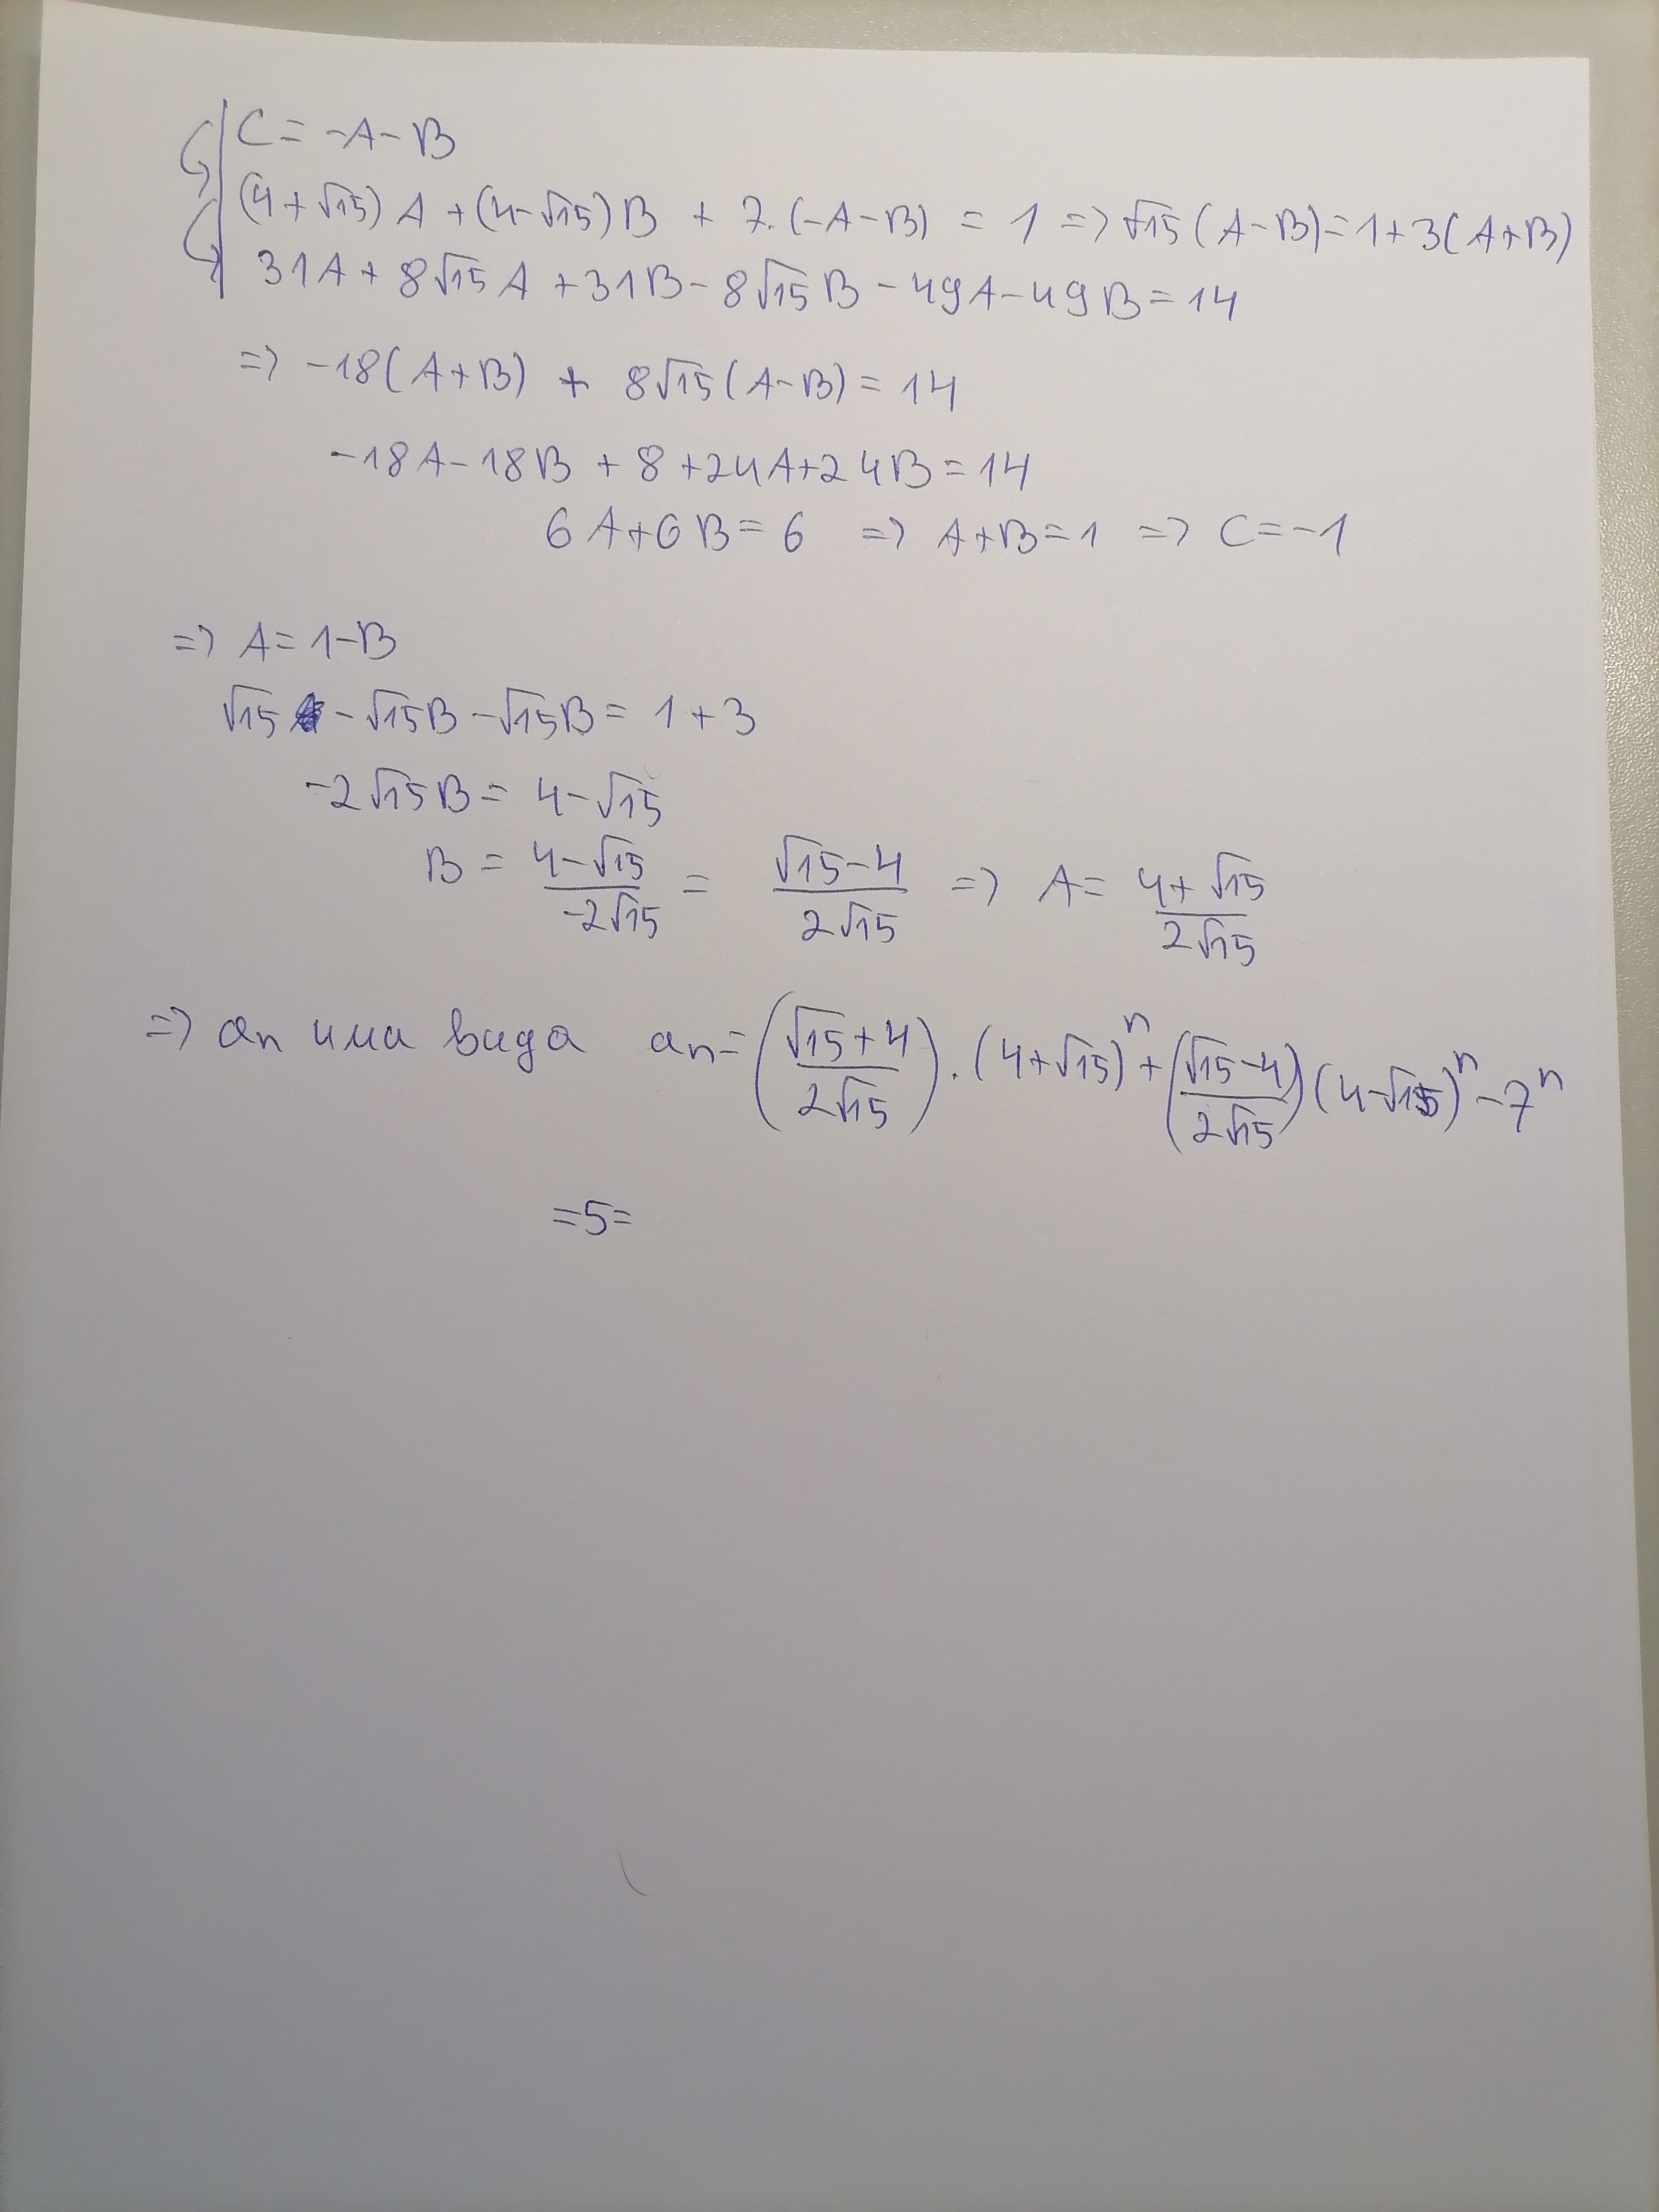 C = -A - B
(4+√15)A + (4-√15)B + 7.(-A-B) = 1 => √15(A-B) = 1+3(A+B)
31A + 8√15A + 31B - 8√15B - 49A - 49B = 14
=> -18(A+B) + 8√15(A-B) = 14
-18A - 18B + 8 + 24A + 24B = 14
6A + 6B = 6 => A+B = 1 => C = -1
=> A = 1-B
√15 - √15B - √15B = 1+3
-2√15B = 4-√15
B = (4-√15)/(-2√15) = (√15-4)/(2√15) => A = (4+√15)/(2√15)
=> an има вида an = ((√15+4)/(2√15)).(4+√15)^n + ((√15-4)/(2√15))(4-√15)^n - 7^n
=5=